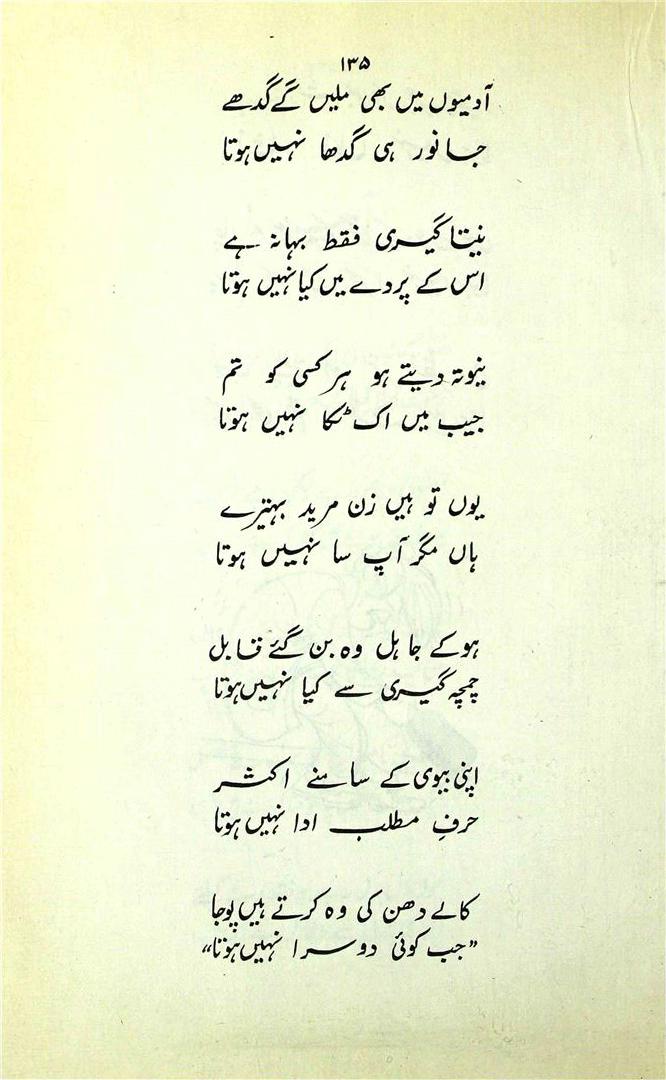 ۱۳۵
آدمیوں میں بھی ملیں گے گدھے
جانور ہی گدھا نہیں ہوتا
نیتا گیری فقط بہانہ ہے
اس کے پردے میں کیا نہیں ہوتا
نیوتہ دیتے ہو ہر کسی کو تم
جیب میں اک ٹکا نہیں ہوتا
یوں تو ہیں زن مرید بہتیرے
ہاں مگر آپ سا نہیں ہوتا
ہو کے جاہل وہ بن گئے قابل
چمچہ گیری سے کیا نہیں ہوتا
اپنی بیوی کے سامنے اکثر
حرفِ مطلب ادا نہیں ہوتا
کالے دھن کی وہ کرتے ہیں پوجا
”جب کوئی دوسرا نہیں ہوتا“